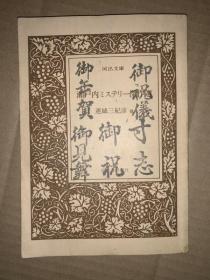 河出文庫
内ミステリー
三紀彦
御祝儀寸志
御祝
御年賀
御見舞